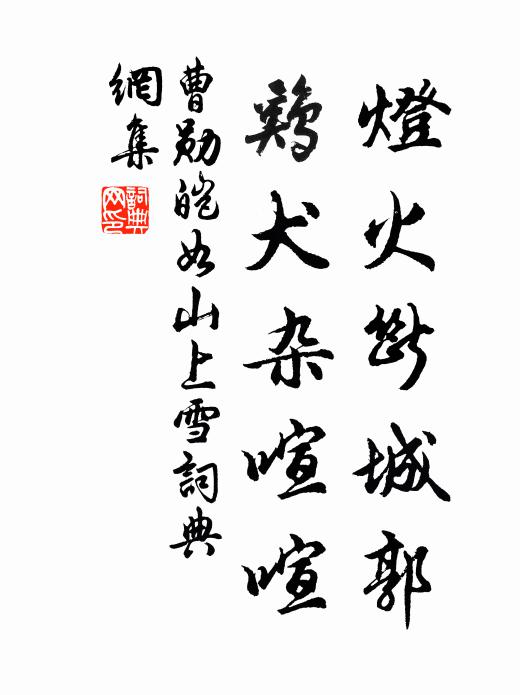 燈火斷城郭
鷄犬杂喧喧
曹勛皚如山上雪詞典
網集
詞典網印